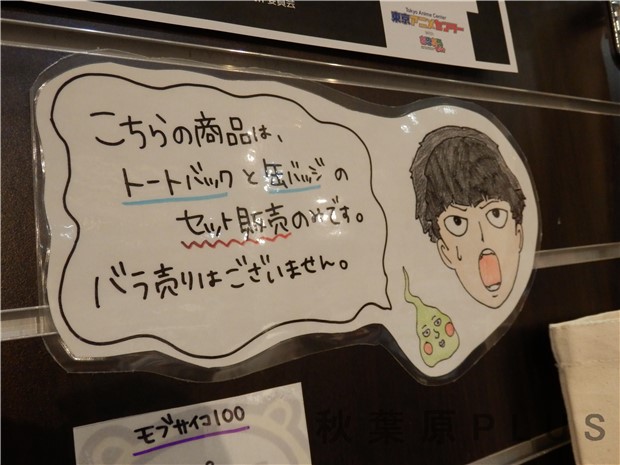 委員会
Tokyo Anime Center
東京アニメセンター
こちらの商品は、
トートバックと缶バッジの
セット販売のみです。
バラ売りはございません。
モブサイコ100
秋葉原PLUS